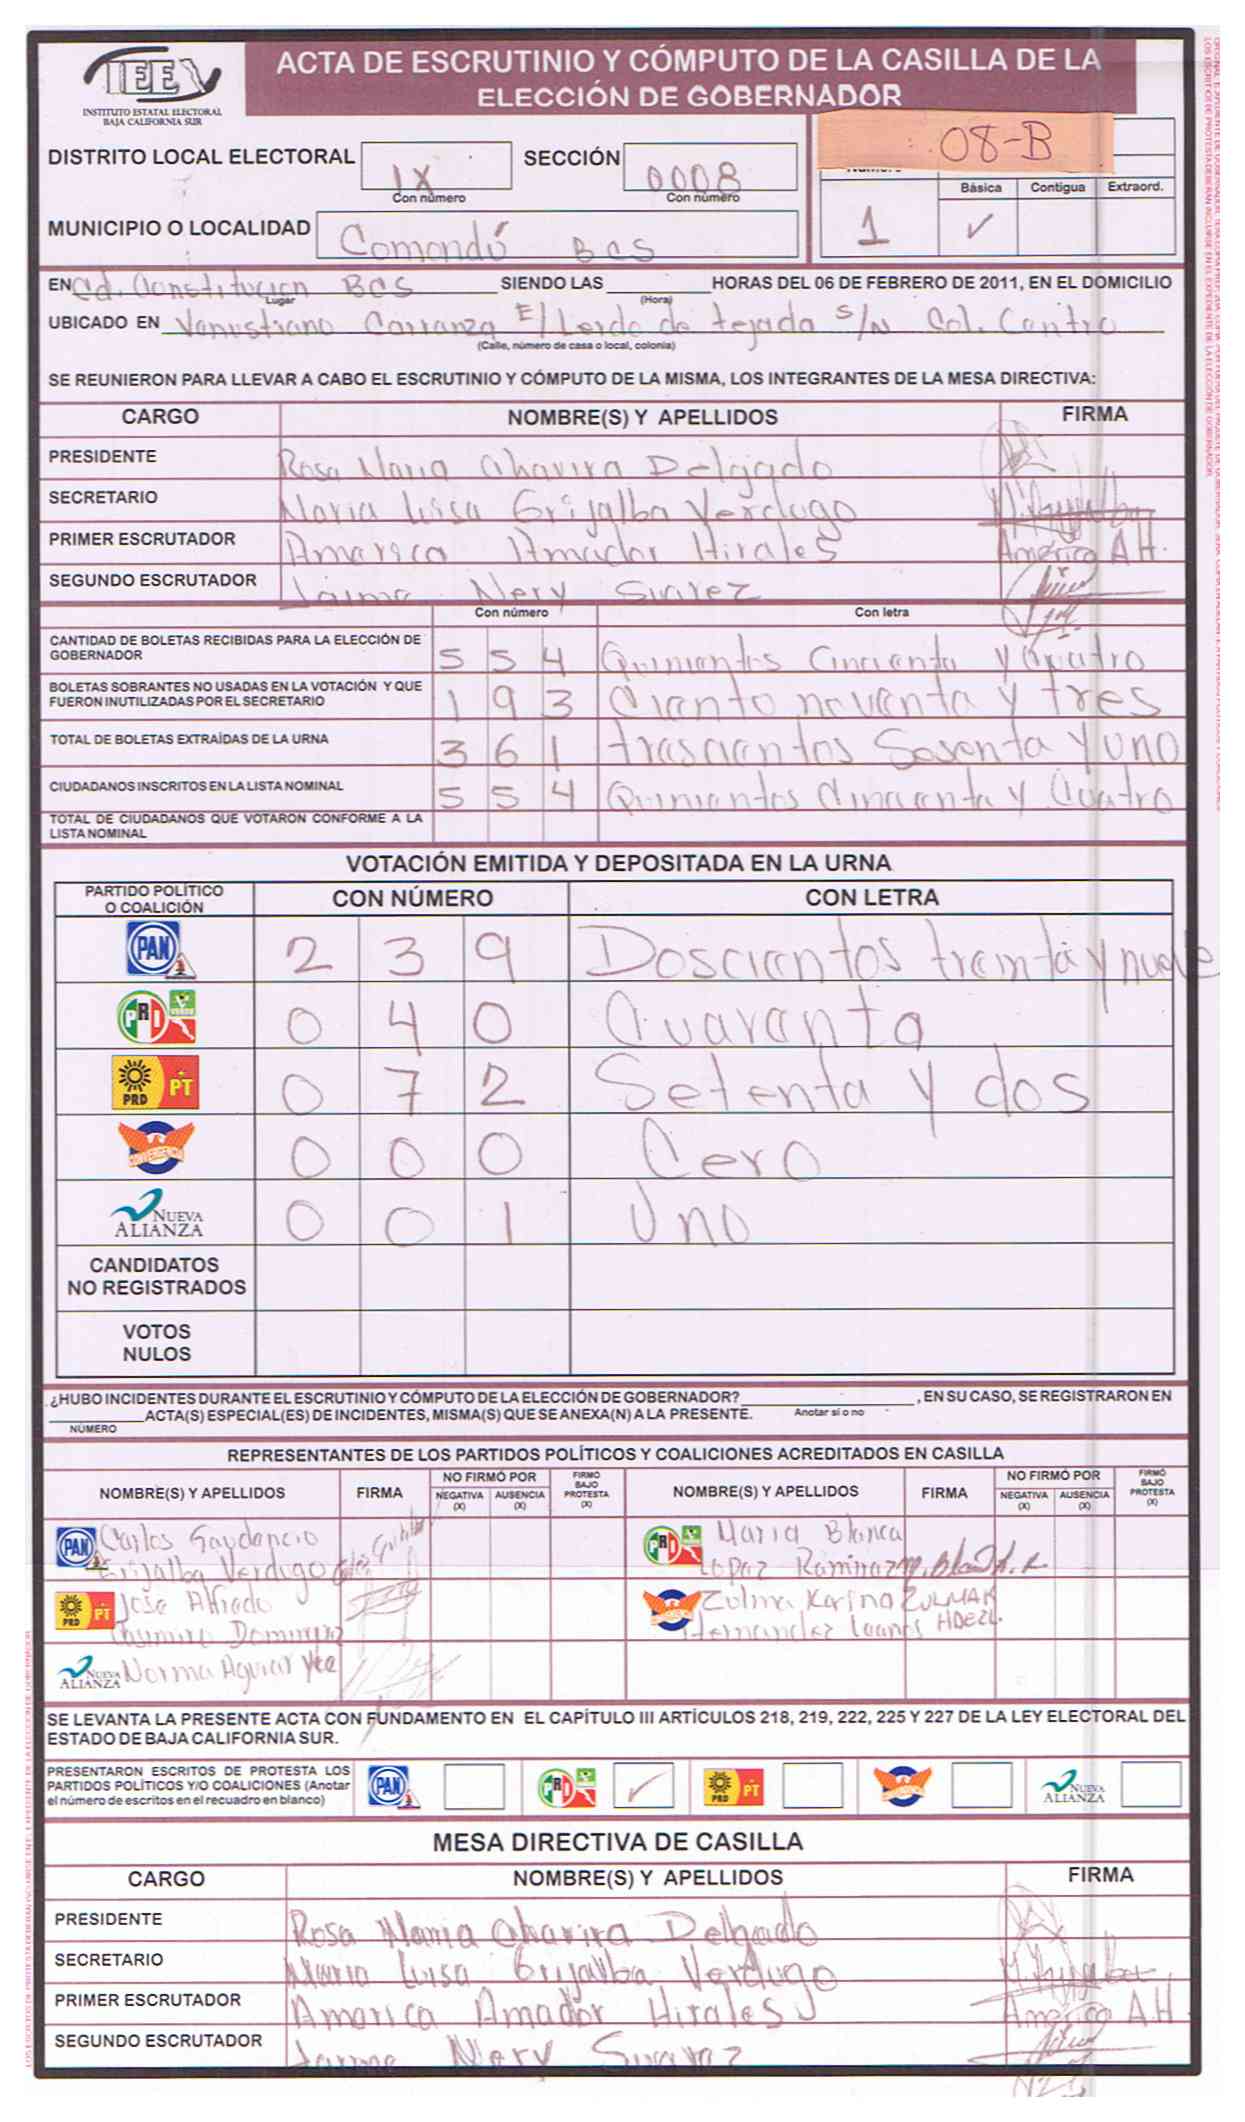 IEEBCS
INSTITUTO ESTATAL ELECTORAL
BAJA CALIFORNIA SUR
ACTA DE ESCRUTINIO Y CÓMPUTO DE LA CASILLA DE LA
ELECCIÓN DE GOBERNADOR
08-B
DISTRITO LOCAL ELECTORAL IX SECCIÓN 0008
Con número Con número
Básica Contigua Extraord.
1 ✓
MUNICIPIO O LOCALIDAD Comondú BCS
EN Cd. Constitucion BCS SIENDO LAS HORAS DEL 06 DE FEBRERO DE 2011, EN EL DOMICILIO
Lugar (Hora)
UBICADO EN Venustiano Carranza E/ Lerdo de tejada S/N Col. Centro
(Calle, número de casa o local, colonia)
SE REUNIERON PARA LLEVAR A CABO EL ESCRUTINIO Y CÓMPUTO DE LA MISMA, LOS INTEGRANTES DE LA MESA DIRECTIVA:
CARGO NOMBRE(S) Y APELLIDOS FIRMA
PRESIDENTE Rosa Maria Chavira Delgado
SECRETARIO Maria Luisa Grijalba Verdugo
PRIMER ESCRUTADOR America Amador Hirales America A.H.
SEGUNDO ESCRUTADOR Jaime Nery Suarez
Con número Con letra
CANTIDAD DE BOLETAS RECIBIDAS PARA LA ELECCIÓN DE
GOBERNADOR 5 5 4 Quinientos Cincuenta y Cuatro
BOLETAS SOBRANTES NO USADAS EN LA VOTACIÓN Y QUE
FUERON INUTILIZADAS POR EL SECRETARIO 1 9 3 Ciento noventa y tres
TOTAL DE BOLETAS EXTRAÍDAS DE LA URNA 3 6 1 trescientos Sesenta y uno
CIUDADANOS INSCRITOS EN LA LISTA NOMINAL 5 5 4 Quinientos Cincuenta y Cuatro
TOTAL DE CIUDADANOS QUE VOTARON CONFORME A LA
LISTA NOMINAL
VOTACIÓN EMITIDA Y DEPOSITADA EN LA URNA
PARTIDO POLÍTICO
O COALICIÓN CON NÚMERO CON LETRA
PAN 2 3 9 Doscientos treinta y nueve
PRI VERDE 0 4 0 Cuarenta
PRD PT 0 7 2 Setenta y dos
CONVERGENCIA 0 0 0 Cero
NUEVA ALIANZA 0 0 1 Uno
CANDIDATOS
NO REGISTRADOS
VOTOS
NULOS
¿HUBO INCIDENTES DURANTE EL ESCRUTINIO Y CÓMPUTO DE LA ELECCIÓN DE GOBERNADOR? , EN SU CASO, SE REGISTRARON EN
ACTA(S) ESPECIAL(ES) DE INCIDENTES, MISMA(S) QUE SE ANEXA(N) A LA PRESENTE. Anotar sí o no
NÚMERO
REPRESENTANTES DE LOS PARTIDOS POLÍTICOS Y COALICIONES ACREDITADOS EN CASILLA
NOMBRE(S) Y APELLIDOS FIRMA NO FIRMÓ POR NEGATIVA (X) AUSENCIA (X) FIRMÓ BAJO PROTESTA (X) NOMBRE(S) Y APELLIDOS FIRMA NO FIRMÓ POR NEGATIVA (X) AUSENCIA (X) FIRMÓ BAJO PROTESTA (X)
PAN Carlos Gaudencio PRI VERDE Maria Blanca
Grijalba Verdugo Lopez Ramirez
PRD PT Jose Alfredo CONVERGENCIA Zulma Karina ZULMAK
Casimiro Dominguez Hernandez HDEZL.
NUEVA ALIANZA Norma Aguiar
SE LEVANTA LA PRESENTE ACTA CON FUNDAMENTO EN EL CAPÍTULO III ARTÍCULOS 218, 219, 222, 225 Y 227 DE LA LEY ELECTORAL DEL
ESTADO DE BAJA CALIFORNIA SUR.
PRESENTARON ESCRITOS DE PROTESTA LOS
PARTIDOS POLÍTICOS Y/O COALICIONES (Anotar
el número de escritos en el recuadro en blanco) PAN PRI VERDE ✓ PRD PT CONVERGENCIA NUEVA ALIANZA
MESA DIRECTIVA DE CASILLA
CARGO NOMBRE(S) Y APELLIDOS FIRMA
PRESIDENTE Rosa Maria Chavira Delgado
SECRETARIO Maria Luisa Grijalba Verdugo
PRIMER ESCRUTADOR America Amador Hirales America A.H.
SEGUNDO ESCRUTADOR Jaime Nery Suarez